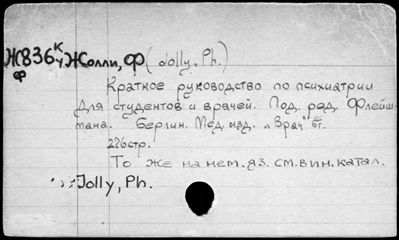 Ж836 К/У Жолли, Ф (Jolly, Ph.)
Ф
Краткое руководство по психиатрии
Для студентов и врачей. Под. ред. Флейш-
мана. Берлин. Мед. изд. „Врач" бг.
276стр.
То же на нем. яз. см. вин. катал.
Jolly, Ph.